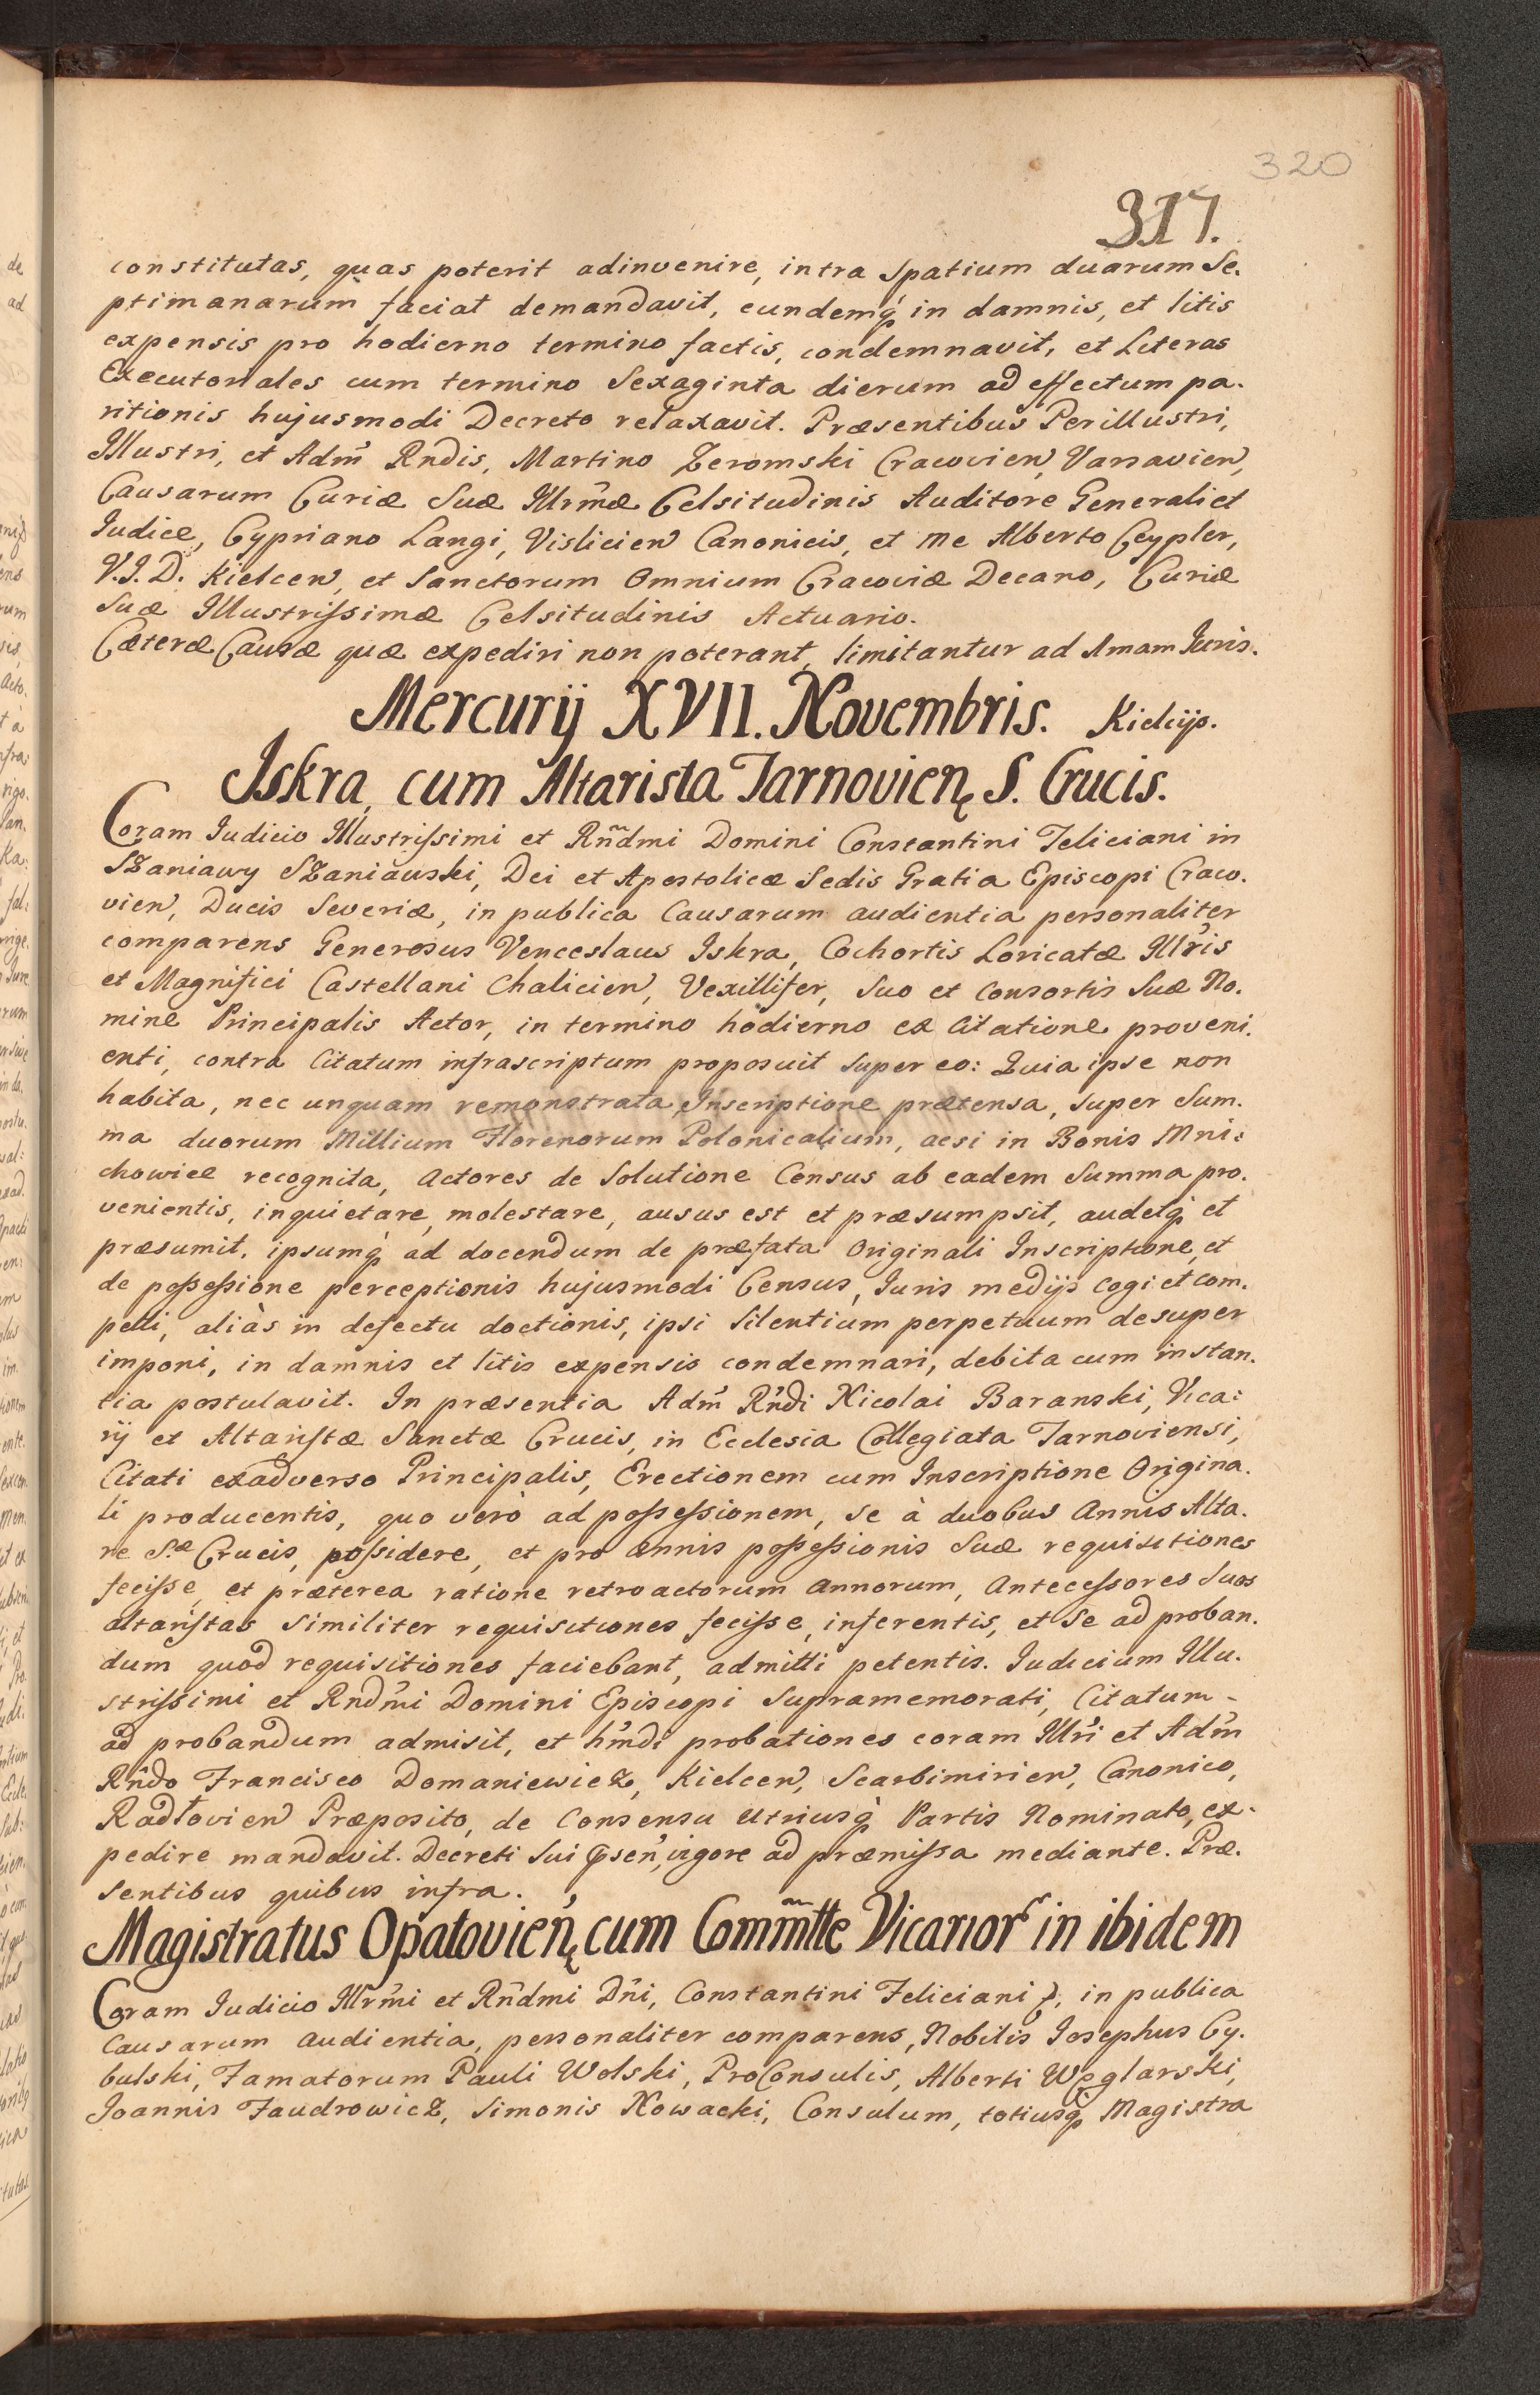 320
317.
constitutas, quas poterit adinvenire, intra Spatium duarum Se.
ptimanarum faciat demandavit, eundemq́ in damnis, et litis
expensis pro hodierno termino factis, condemnavit, et Literas
Executoriales cum termino Sexaginta dierum ad effectum pa.
ritionis hujusmodi Decreto relaxavit. Præsentibus Perillustri,
Illustri, et Adm̃ Rndis, Martino Zeromski Cracovien, Varsavien,
Causarum Curiæ Suæ Illrm̃æ Celsitudinis Auditore Generali et
Iudice, Cypriano Langi, Vislicien Canonicis, et me Alberto Ceypler,
V.J.D. Kielcen, et Sanctorum Omnium Cracoviæ Decano, Curiæ
Suæ Illustrissimæ Celsitudinis Actuario.
Cæteræ Causæ quæ expediri non poterant, limitantur ad Amam Juris.
Mercurij XVII. Novembris. Kielcijs.
Iskra, cum Altarista Tarnovien S. Crucis.
Coram Iudicio Illustrissimi et Rñdmi Domini Constantini Feliciani in
Szaniawy Szaniawski, Dei et Apostolicæ Sedis Gratia Episcopi Craco.
vien, Ducis Severiæ, in publica Causarum audientia personaliter
comparens Generosus Venceslaus Iskra, Cohortis Loricatæ Illris
et Magnifici Castellani Chalicien, Vexillifer, Suo et Consortis Suæ No.
mine Principalis Actor, in termino hodierno ex Citatione proveni.
enti, contra Citatum infrascriptum proposuit super eo: Quia ipse non
habita, nec unquam remonstrata Inscriptione prætensa, super Sum.
ma duorum Millium Florenorum Polonicalium, acsi in Bonis Mni:
chowice recognita, Actores de Solutione Census ab eadem Summa pro.
venientis, inquietare, molestare, ausus est et præsumpsit, audetq́ et
præsumit, ipsumq́ ad docendum de præfata Originali Inscriptione, et
de possessione perceptionis hujusmodi Census, Juris medijs cogi et com.
pelli, aliàs in defectu doctionis, ipsi Silentium perpetuum desuper
imponi, in damnis et litis expensis condemnari, debita cum instan.
tia postulavit. In præsentia Adm̃ Rñdi Nicolai Baranski, Vica:
rij et Altaristæ Sanctæ Crucis, in Ecclesia Collegiata Tarnoviensi,
Citati exadverso Principalis, Erectionem cum Inscriptione Origina.
li producentis, quo verò ad possessionem, se à duobus Annis Alta.
re S.æ Crucis, possidere, et pro annis possessionis Suæ requisitiones
fecisse, et præterea ratione retroactorum Annorum, Antecessores Suos
altaristas similiter requisitiones fecisse, inferentis, et Se ad proban.
dum quod requisitiones faciebant, admitti petentis. Iudicium Illu.
strissimi et Rndm̃i Domini Episcopi Supramemorati, Citatum -
ad probandum admisit, et hm̃di probationes coram Illri et Adm̃
Rñdo Francisco Domaniewicz, Kielcen, Scarbimirien, Canonico,
Radłovien Præposito, de Consensu Utriusq́ Partis Nominato, ex.
pedire mandavit. Decreti Sui p̃sen, vigore ad præmissa mediante. Præ.
sentibus quibus infra.
Magistratus Opatovień, cum Comm̃tte Vicarior in ibidem
Coram Iudicio Illrm̃i et Rñdmi Dñi, Constantini Feliciani in publica
Causarum audientia, personaliter comparens, Nobilis Iosephus Cy.
bulski, Famatorum Pauli Wolski, ProConsulis, Alberti Węglarski,
Joannis Faudrowicz, Simonis Nowacki, Consulum, totiusq́ Magistra